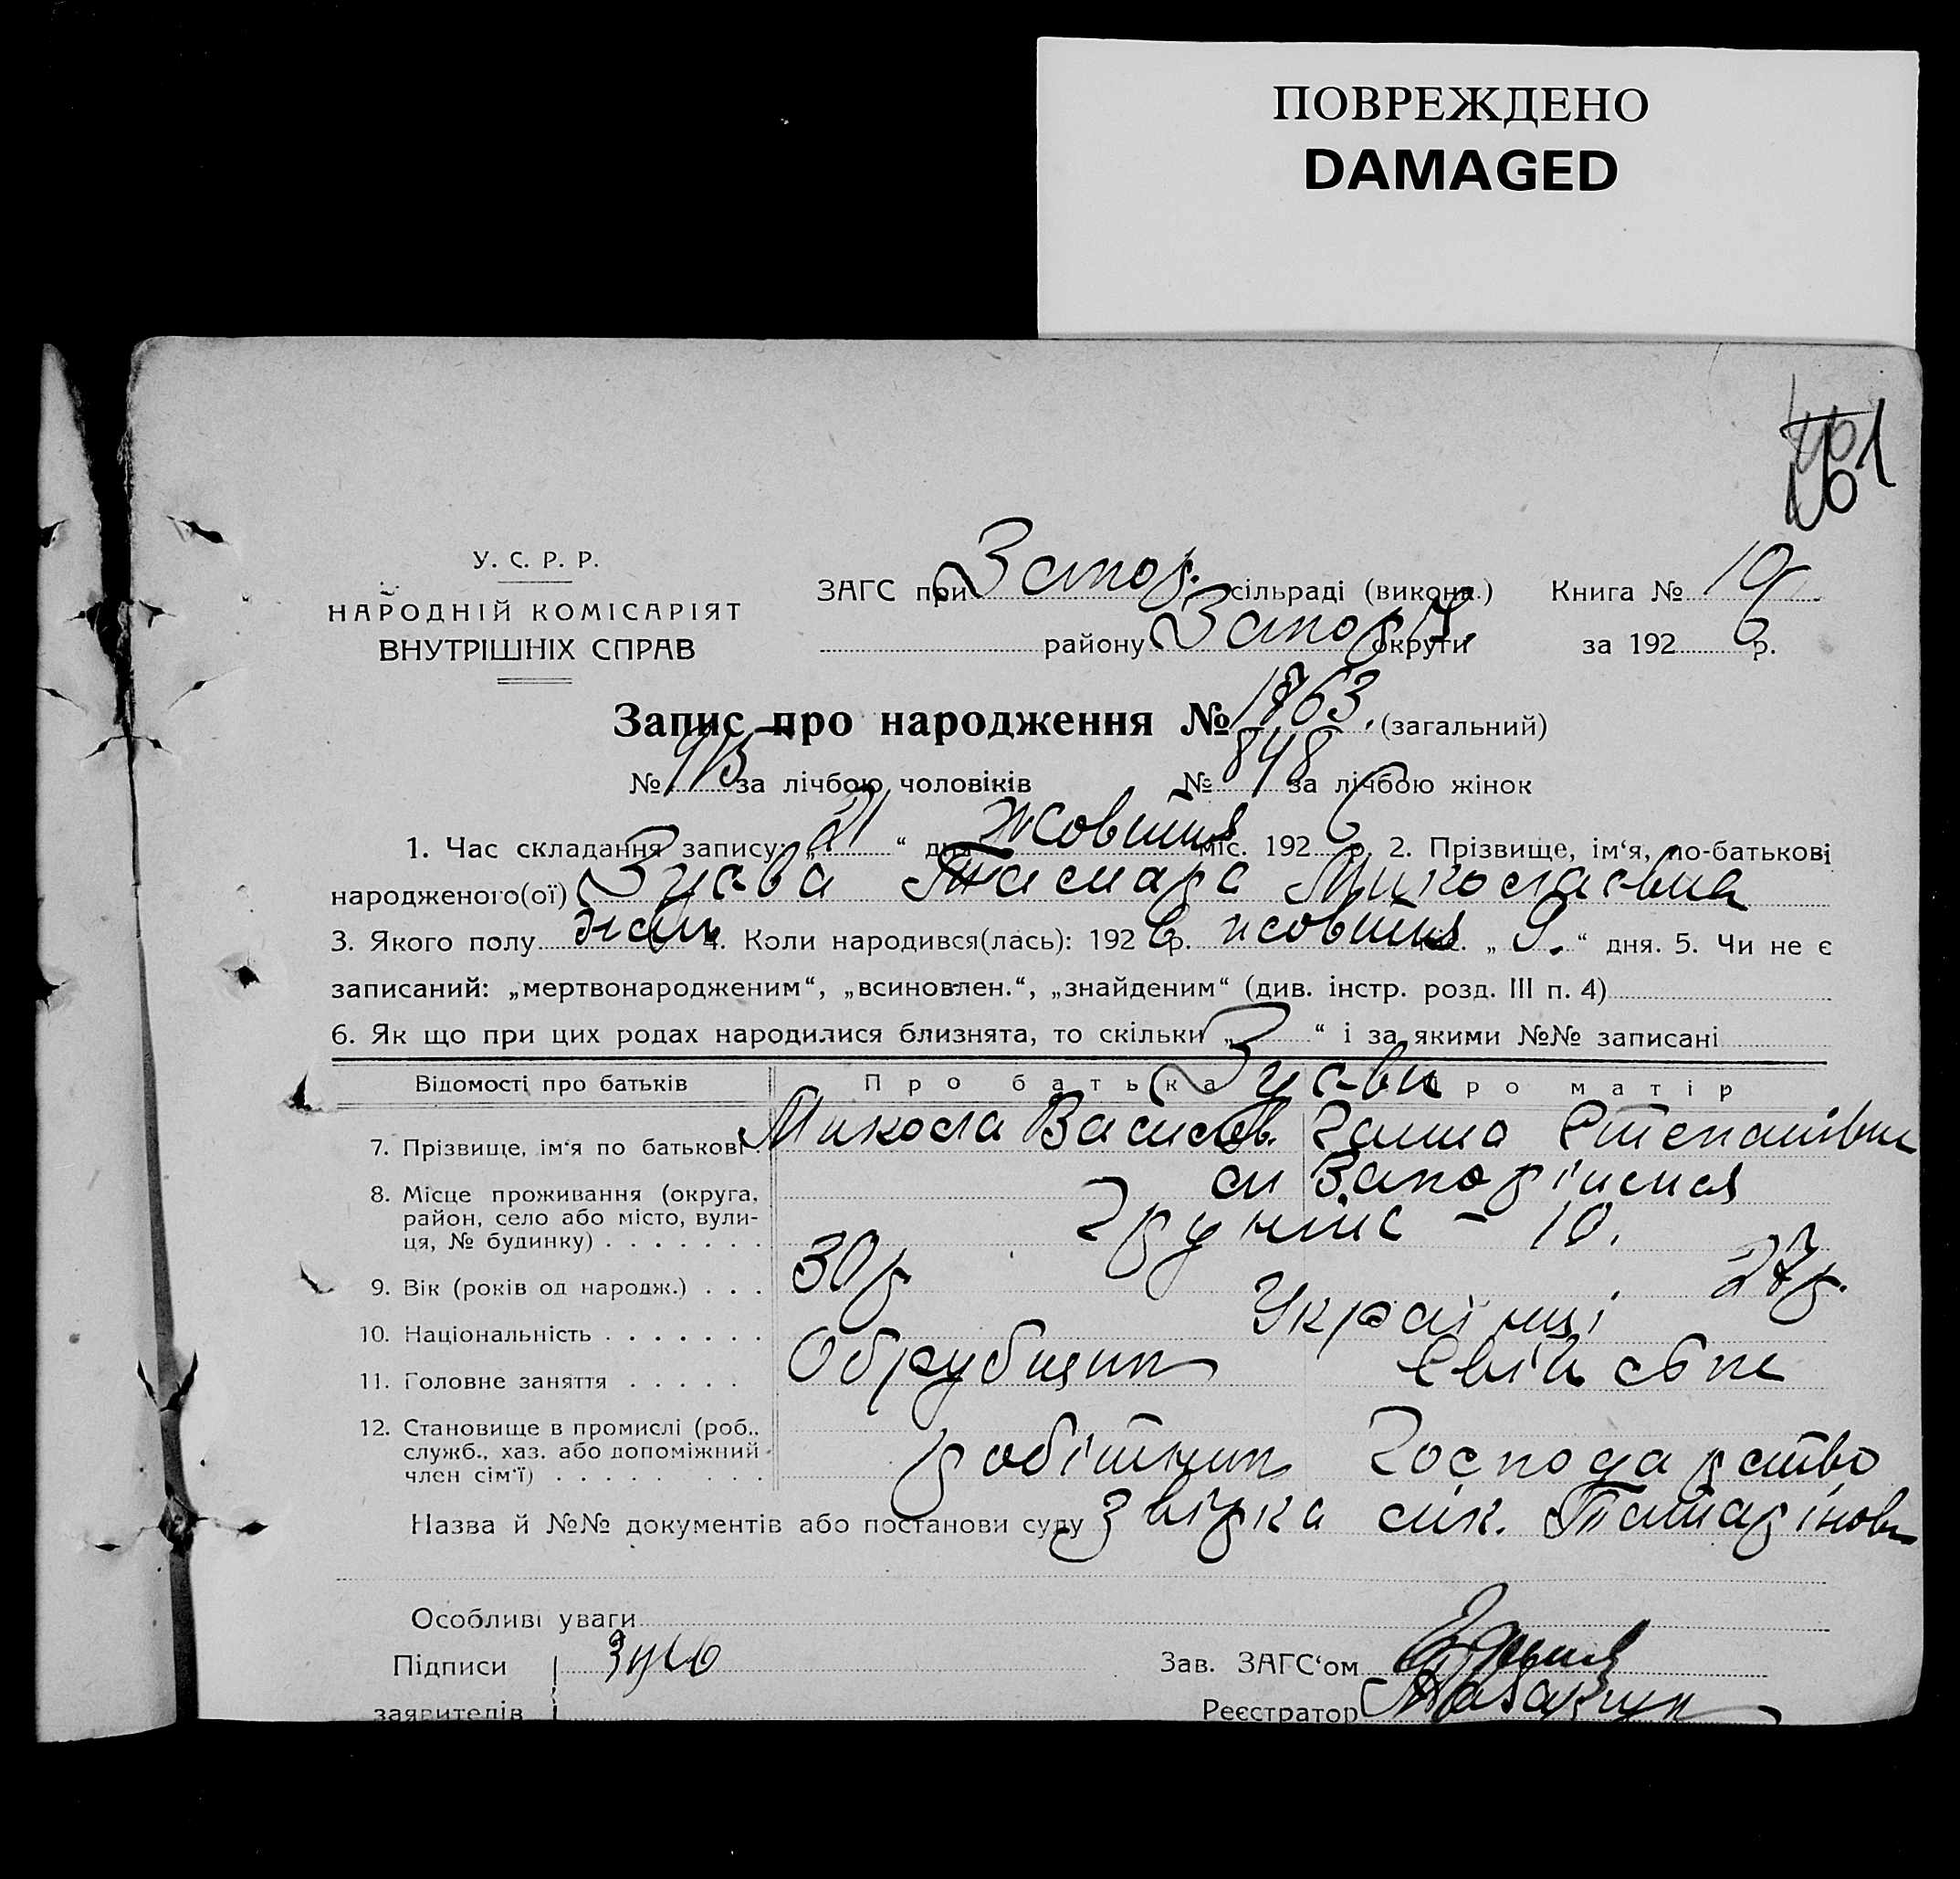 ПОВРЕЖДЕНО
DAMAGED
У. С. Р. Р.
НАРОДНІЙ КОМІСАРІЯТ
ВНУТРІШНІХ СПРАВ
ЗАГС при Запор. сільраді (викона.) Книга № 19
району Запор. округи за 1926 р.
Запис про народження № 1763. (загальний)
№ 915 за лічбою чоловіків № 848 за лічбою жінок
1. Час складання запису: „21“ дня жовтня міс. 1926 р. 2. Прізвище, ім‘я, по-батькові
народженого(ої) Зуєва Тамара Миколаєвна
3. Якого полу жін. 4. Коли народився(лась): 1926 р. жовтня міс. „9.“ дня. 5. Чи не є
записаний: „мертвонародженим“, „всиновлен.“, „знайденим“ (див. інстр. розд. III п. 4)
6. Як що при цих родах народилися близнята, то скільки „ “ і за якими №№ записані
Відомості про батьків Про батька Зуєви Про матір
7. Прізвище, ім‘я по батькові Микола Васильов. Ганна Степанівна
8. Місце проживання (округа, м Запоріжжя
район, село або місто, вули-
ця, № будинку) 10.
9. Вік (років од народж.) 30 р 27 р.
10. Національність Українці
11. Головне заняття Обрубщик Свійське
12. Становище в промислі (роб., служб., хаз. або допоміжний член сім‘ї) робітник Господарство
Назва й №№ документів або постанови суду Звірка лік. Татарінова
Особливі уваги
Підписи Зав. ЗАГС‘ом
заявителів Реєстратор